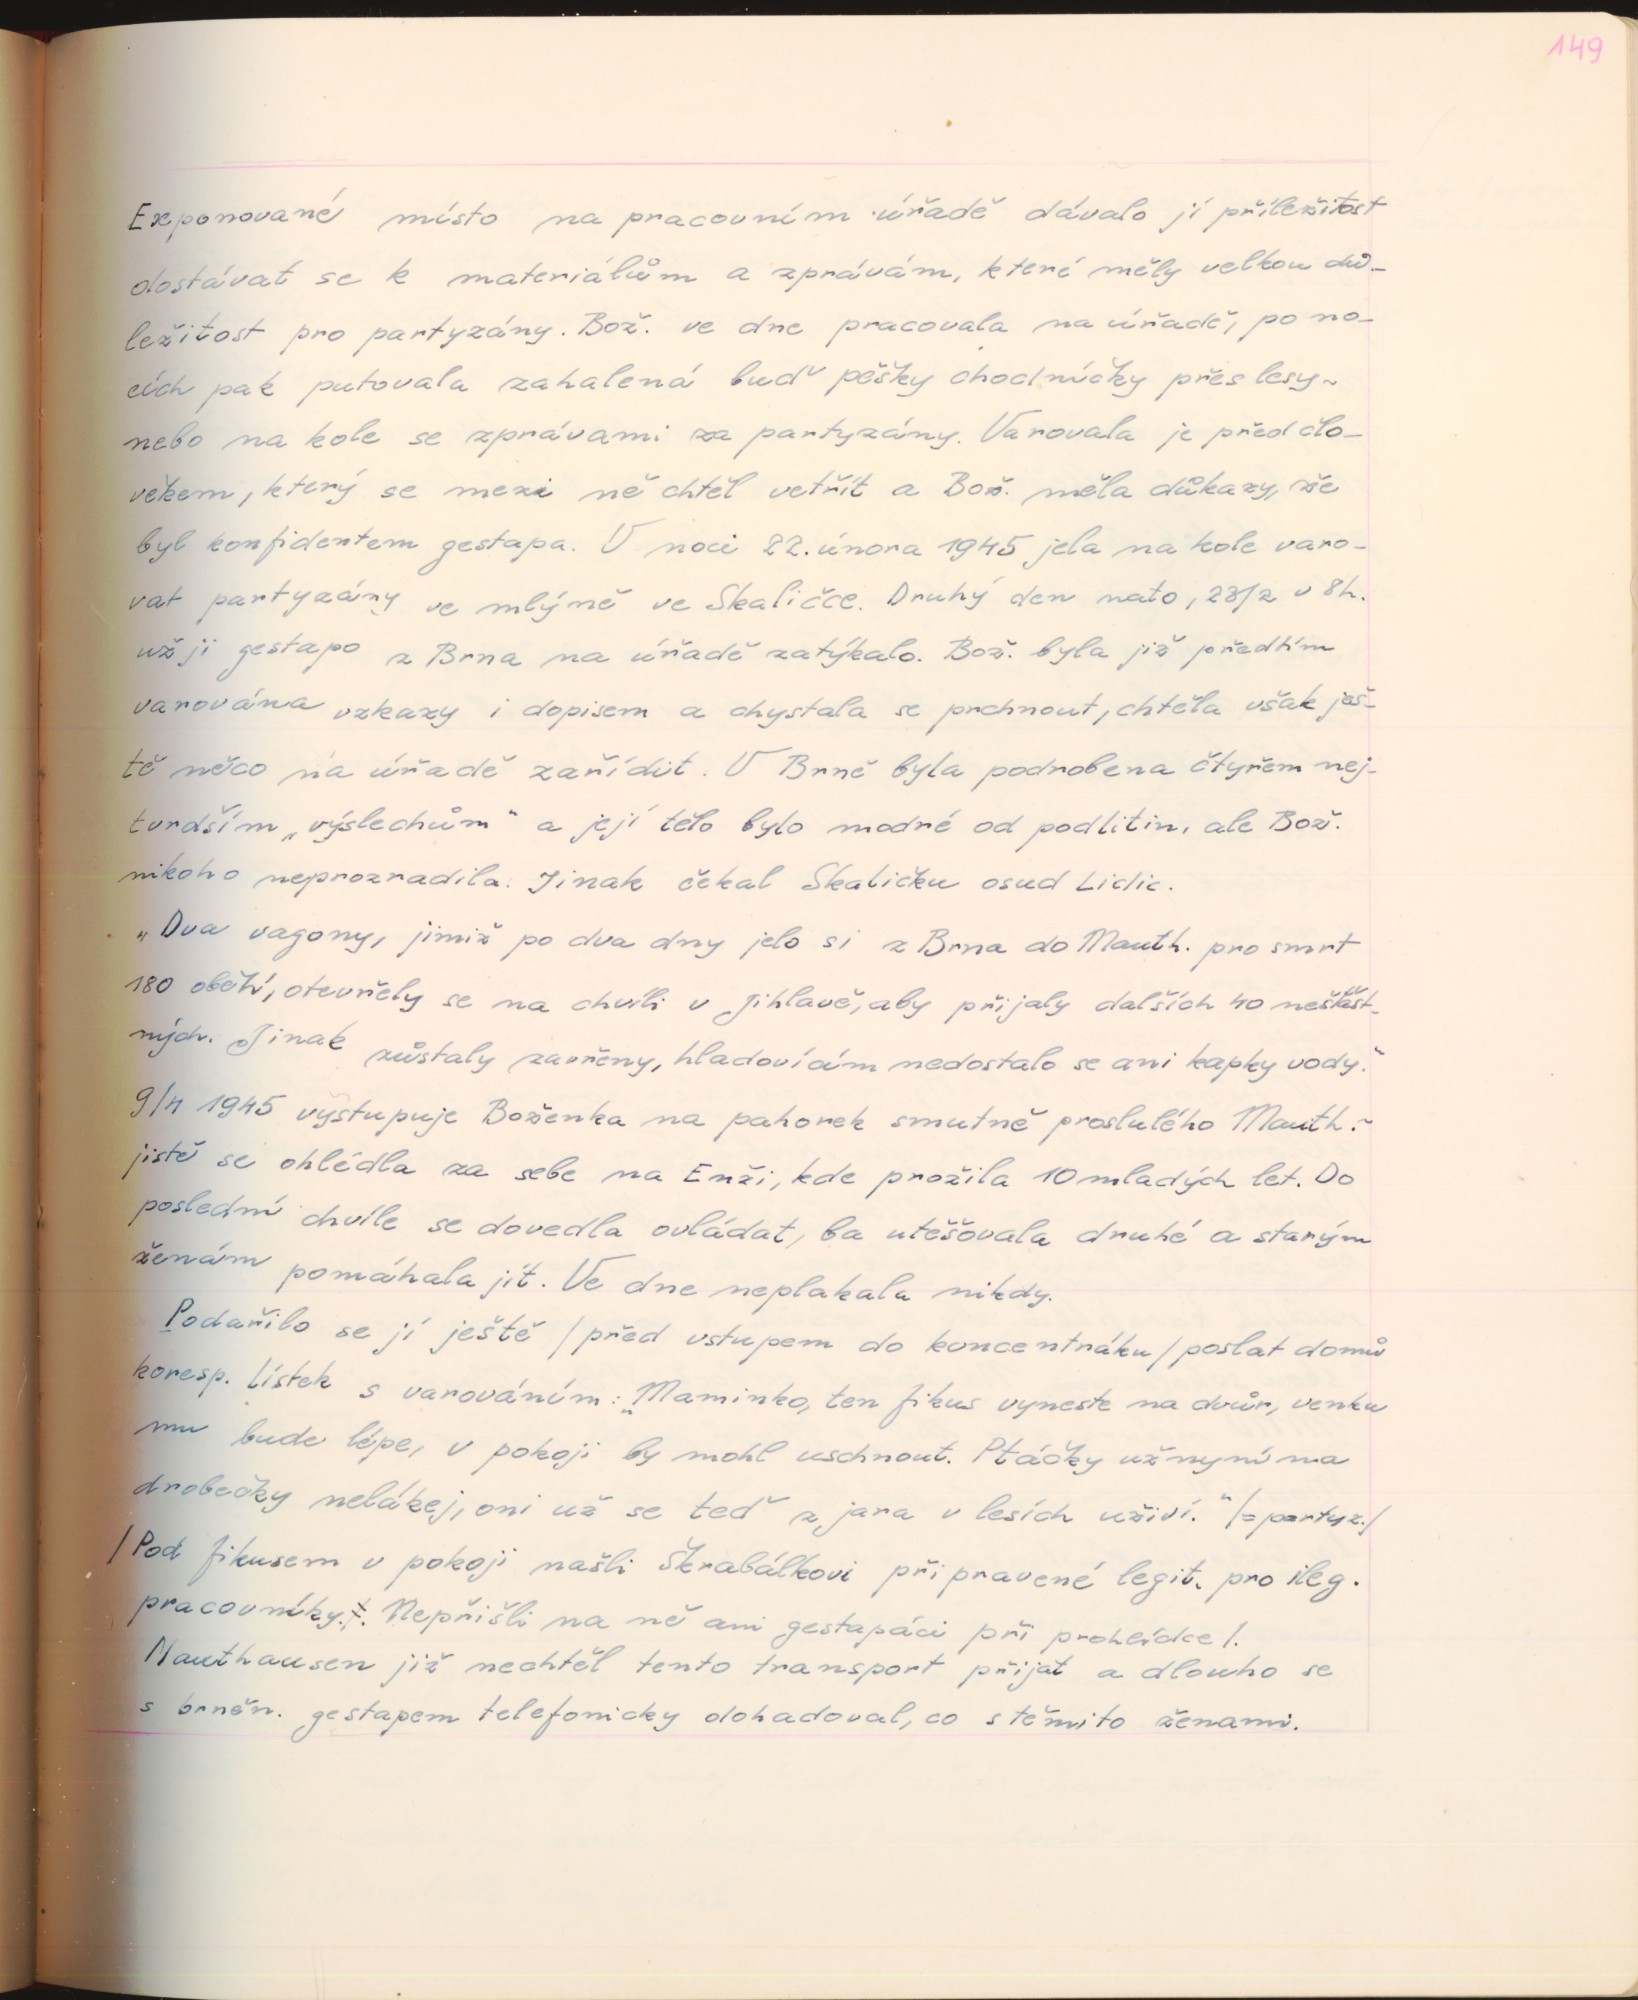 149
Exponované místo na pracovním úřadě dávalo jí příležitost
dostávat se k materiálům a zprávám, které měly velkou dů-
ležitost pro partyzány. Bož. ve dne pracovala na úřadě, po no-
cích pak putovala zahalená buď pěšky chodníčky přes lesy
nebo na kole se zprávami za partyzány. Varovala je před člo-
věkem, který se mezi ně chtěl vetřít a Bož. měla důkazy, že
byl konfidentem gestapa. V noci 22. února 1945 jela na kole varo-
vat partyzány ve mlýně ve Skaličce. Druhý den nato, 23/2 v 8h.
už ji gestapo z Brna na úřadě zatýkalo. Bož. byla již předtím
varována vzkazy i dopisem a chystala se prchnout, chtěla však ješ-
tě něco na úřadě zařídit. V Brně byla podrobena čtyřem nej-
tvrdším „výslechům" a její tělo bylo modré od podlitin, ale Bož.
nikoho neprozradila. Jinak čekal Skaličku osud Lidic.
„Dva vagony, jimiž po dva dny jelo si z Brna do Mauth. pro smrt
180 obětí, otevřely se na chvíli v Jihlavě, aby přijaly dalších 40 nešťast-
ných. Jinak zůstaly zavřeny, hladovícím nedostalo se ani kapky vody."
9/4 1945 vystupuje Boženka na pahorek smutně proslulého Mauth. -
jistě se ohlédla za sebe na Enži, kde prožila 10 mladých let. Do
poslední chvíle se dovedla ovládat, ba utěšovala druhé a starým
ženám pomáhala jít. Ve dne neplakala nikdy.
Podařilo se jí ještě /před vstupem do koncentráku/ poslat domů
koresp. lístek s varováním: „Maminko, ten fikus vyneste na dvůr, venku
mu bude lépe, v pokoji by mohl uschnout. Ptáčky už nyní na
drobečky nelákej, oni už se teď z jara v lesích uživí." /= partyz./
/Pod fikusem v pokoji našli Škrabálkovi připravené legit. pro ileg.
pracovníky. Nepřišli na ně ani gestapáci při prohlídce/.
Mauthausen již nechtěl tento transport přijat a dlouho se
s brněn. gestapem telefonicky dohadoval, co s těmito ženami.